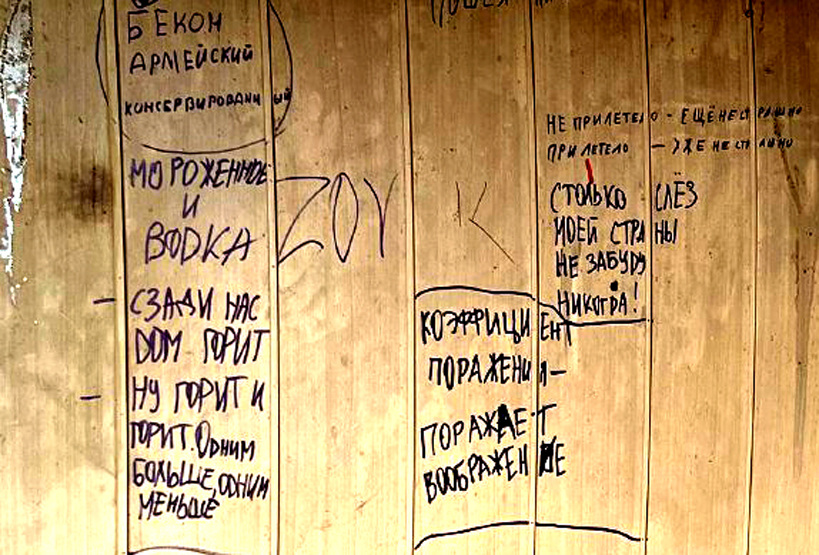 БЕКОН
АРМЕЙСКИЙ
КОНСЕРВИРОВАННЫЙ
МОРОЖЕННОЕ
И
ВОДКА
ZOV
К
– СЗАДИ НАС
ДОМ ГОРИТ
– НУ ГОРИТ И
ГОРИТ. ОДНИМ
БОЛЬШЕ, ОДНИМ
МЕНЬШЕ
НЕ ПРИЛЕТЕЛО - ЕЩЁ НЕ СТРАШНО
ПРИЛЕТЕЛО — УЖЕ НЕ СТРАШНО
СТОЛЬКО СЛЁЗ
МОЕЙ СТРАНЫ
НЕ ЗАБУДУ
НИКОГДА!
КОЭФФИЦИЕНТ
ПОРАЖЕНИЯ —
ПОРАЖАЕТ
ВООБРАЖЕНИЕ